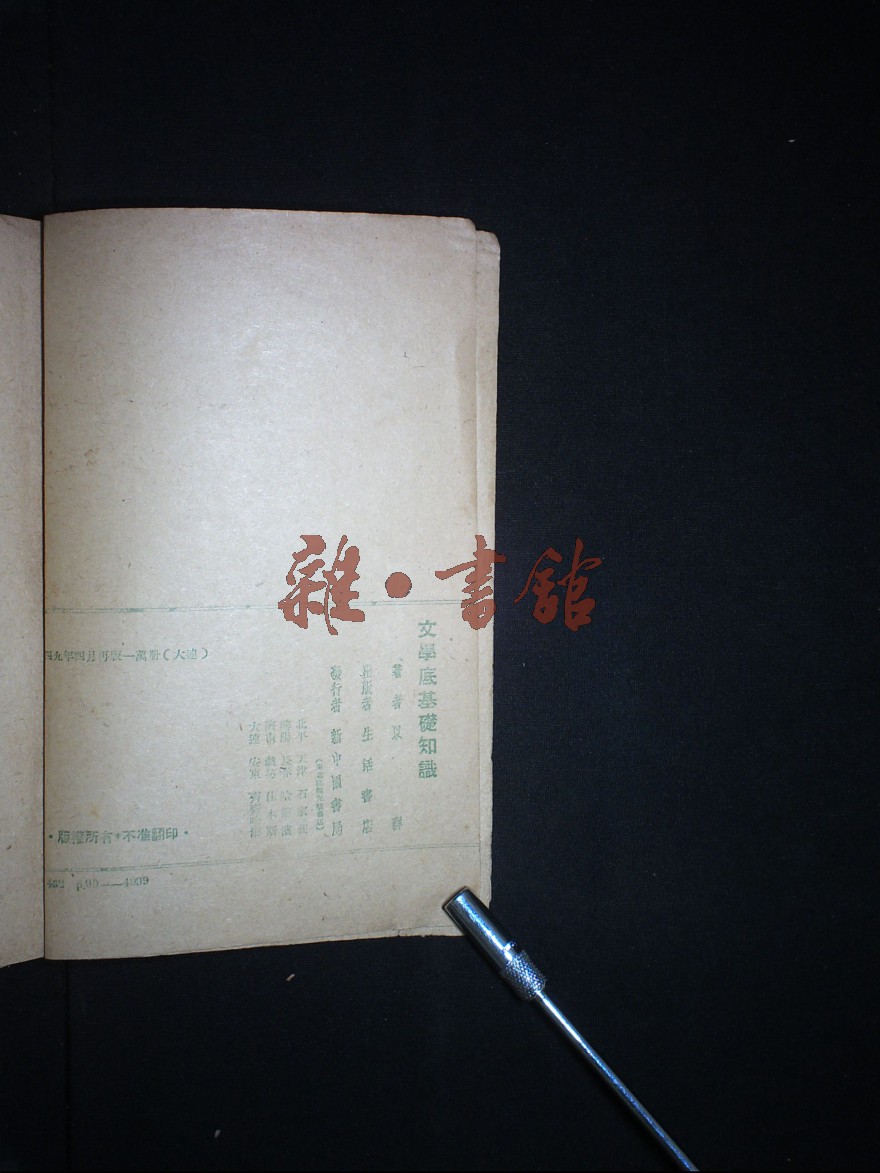 雜·書館
文學底基礎知識
著者 以 群
出版者 生活書店
發行者 新中國書局
北平 天津 石家莊
瀋陽 長春 哈爾濱
濟南 濰坊 佳木斯
大連 安東 齊齊哈爾
四九年四月再版一萬冊(大連)
·版權所有·不准翻印·